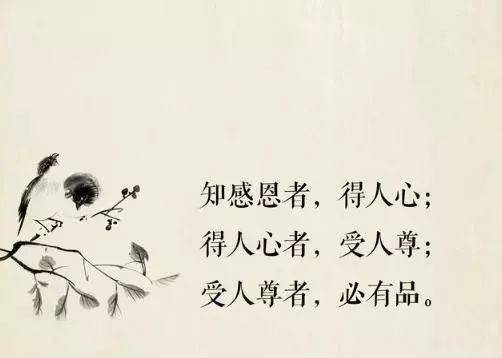 知感恩者，得人心；
得人心者，受人尊；
受人尊者，必有品。